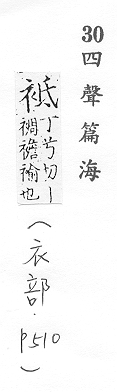 30四聲篇海
袛丁兮切｜
裯襜褕也
（衣部．p510）